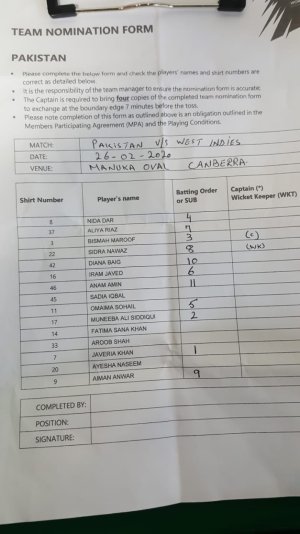 TEAM NOMINATION FORM
PAKISTAN
• Please complete the below form and check the players' names and shirt numbers are
correct as detailed below.
• It is the responsibility of the team manager to ensure the nomination form is accurate;
• The Captain is required to bring four copies of the completed team nomination form
to exchange at the boundary edge 7 minutes before the toss.
• Please note completion of this form as outlined above is an obligation outlined in the
Members Participating Agreement (MPA) and the Playing Conditions.
MATCH: PAKISTAN V/S WEST INDIES
DATE: 26-02-2020
VENUE: MANUKA OVAL CANBERRA
Shirt Number Player's name Batting Order or SUB Captain (*) Wicket Keeper (WKT)
8 NIDA DAR 4
37 ALIYA RIAZ 7
3 BISMAH MAROOF 3 (C)
22 SIDRA NAWAZ 8 (WK)
42 DIANA BAIG 10
16 IRAM JAVED 6
46 ANAM AMIN 11
45 SADIA IQBAL
11 OMAIMA SOHAIL 5
17 MUNEEBA ALI SIDDIQUI 2
14 FATIMA SANA KHAN
33 AROOB SHAH
7 JAVERIA KHAN 1
20 AYESHA NASEEM
9 AIMAN ANWAR 9
COMPLETED BY:
POSITION:
SIGNATURE: